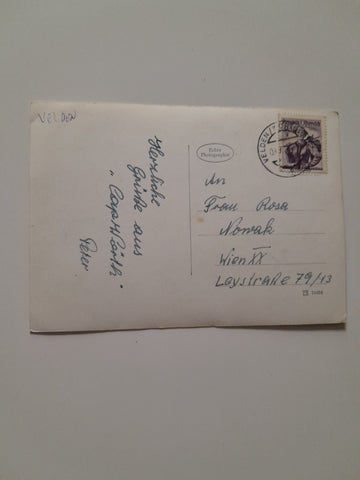 VELDEN
Herzliche
Grüße aus
"Cap Wörth"
Peter
Echte
Photographie
An
Frau Rosa
Nowak
Wien XX
Leystraße 79/13
VELDEN